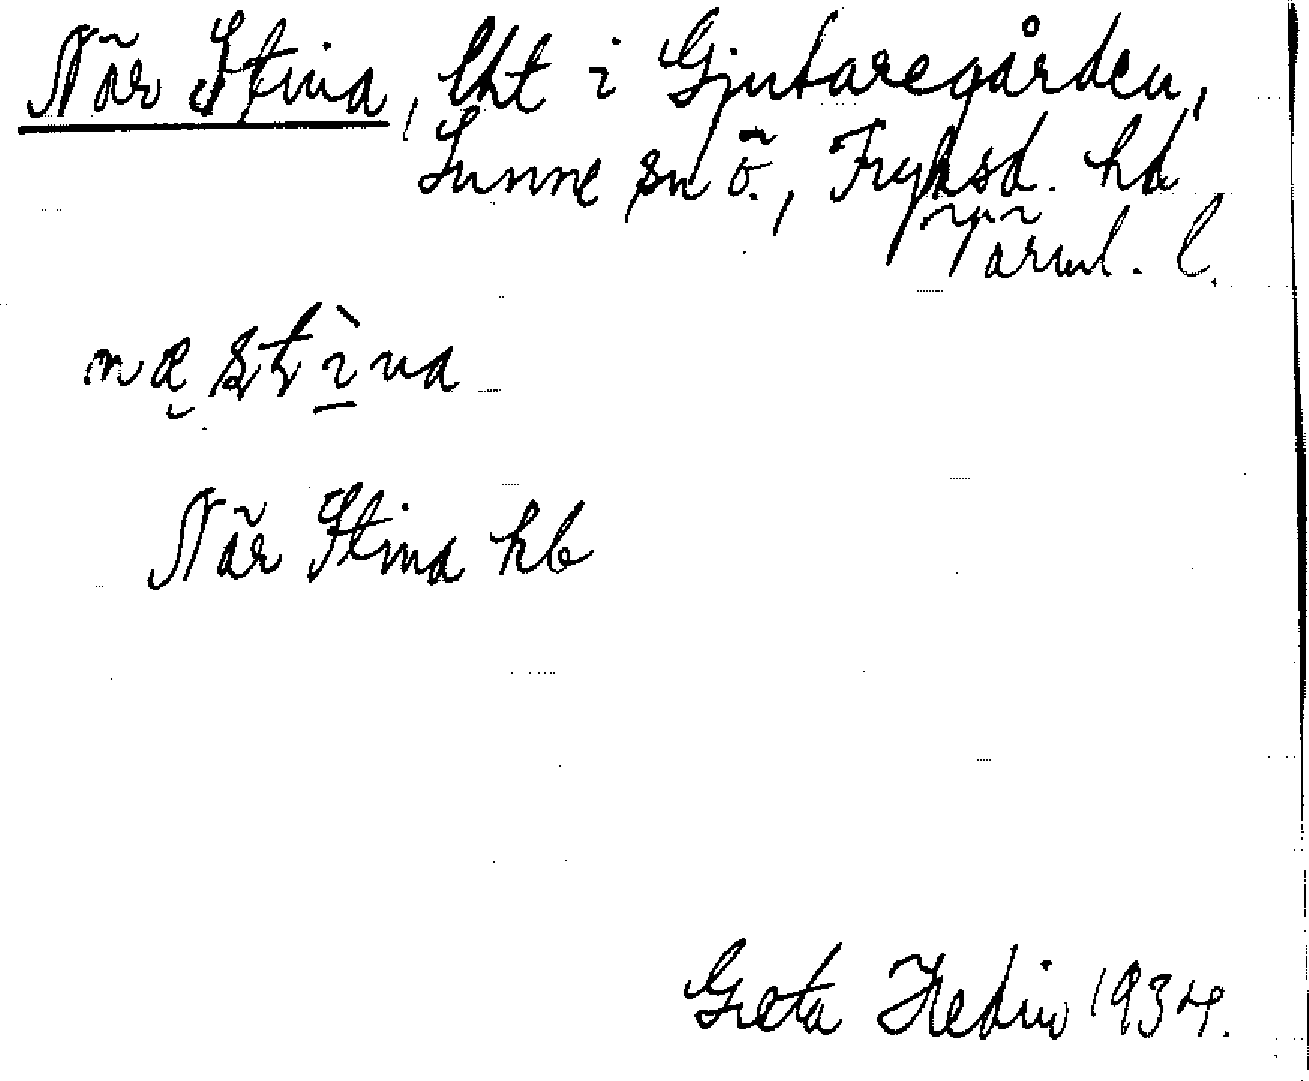 När Stina, lht i Gjutaregården,
Sunne sn ö., Fryksd. hd
Värml. l.
næ stìna
När Stina hb
Greta Hedin 1934.